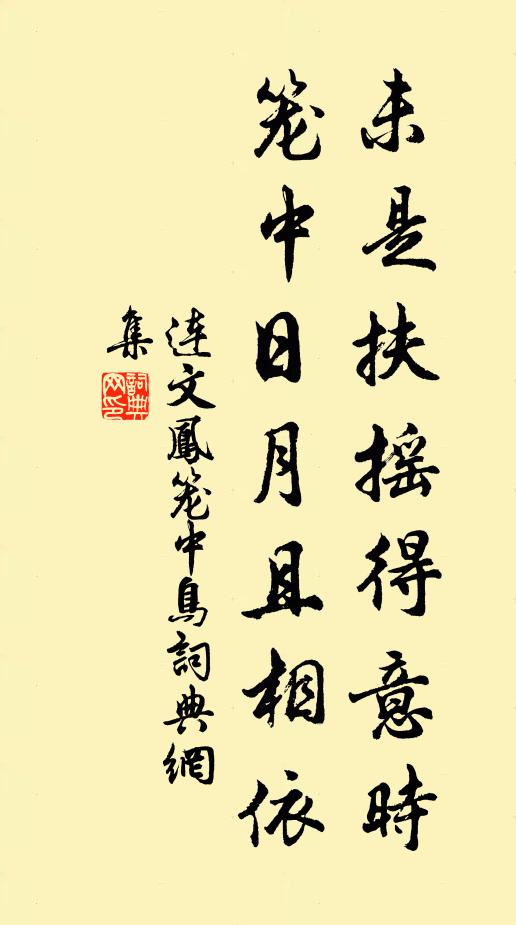 未是扶摇得意時
笼中日月且相依
連文鳳笼中鳥詞典網
集
詞典
网印